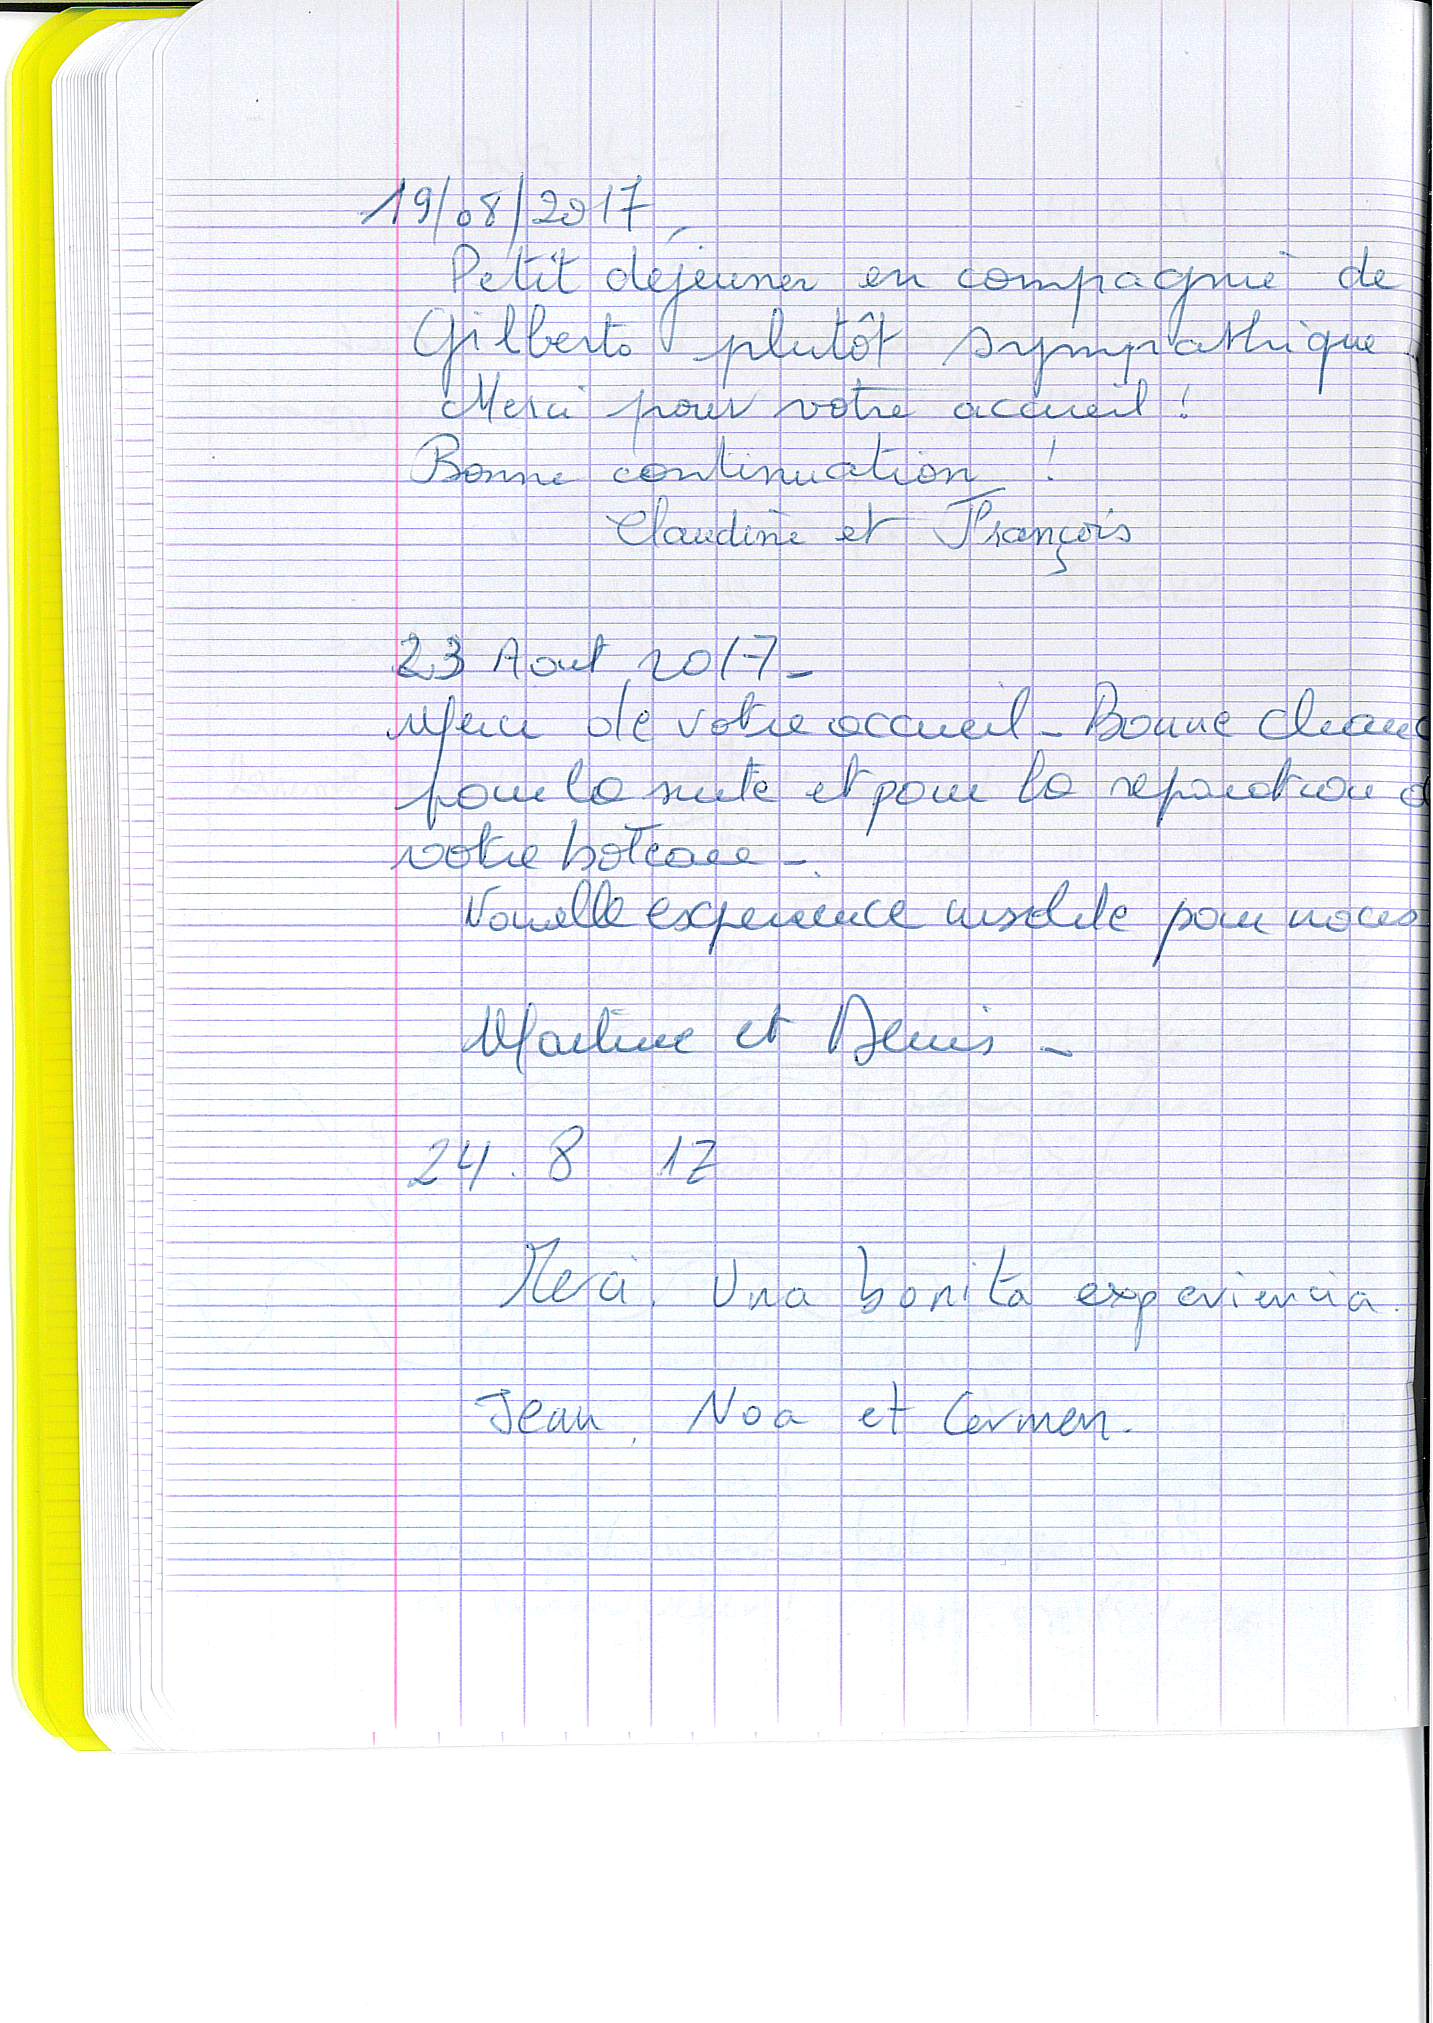 19/08/2017
Petit déjeuner en compagnie de
Gilberto plutôt sympathique.
Merci pour votre accueil !
Bonne continuation !
Claudine et François
23 Aout 2017-
Merci de votre accueil - Bonne chanc
pour la suite et pour la reparation d
votre bateau -
Nouvelle experience insolite pour nous
Martine et Denis -
24. 8 17
Merci. Una bonita experiencia.
Jean, Noa et Carmen.